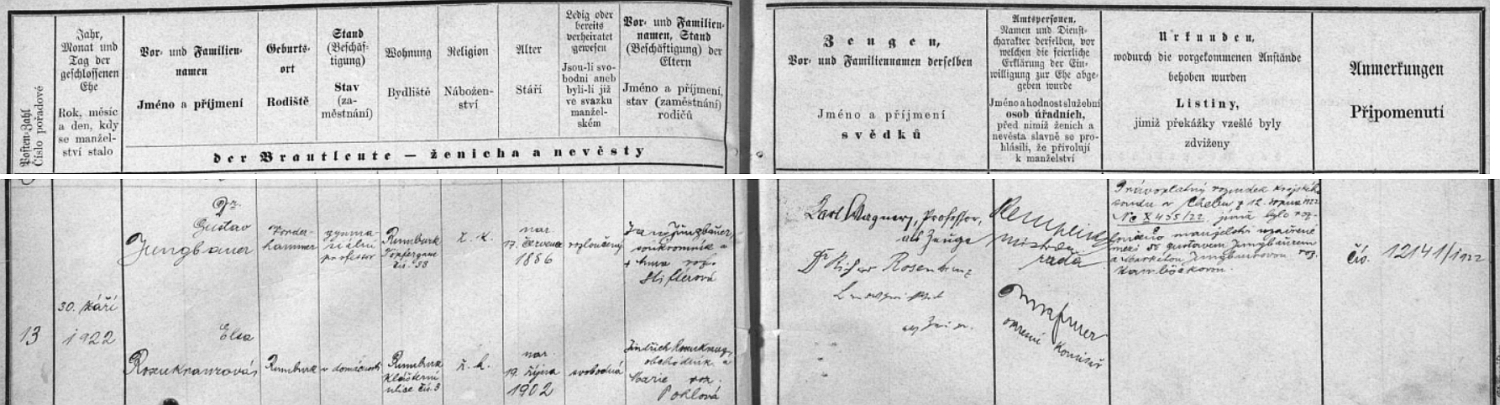 Posten-Zahl
Číslo pořadové
Jahr,
Monat und
Tag der
geschlossenen
Ehe
Rok, měsíc
a den, kdy
se manžel-
ství stalo
Vor- und Familien-
namen
Jméno a příjmení
Geburts-
ort
Rodiště
Stand
(Beschäf-
tigung)
Stav
(za-
městnání)
Wohnung
Bydliště
Religion
Nábožen-
ství
Alter
Stáří
Ledig oder
bereits
verheiratet
gewesen
Jsou-li svo-
bodni aneb
byli-li již
ve svazku
manžel-
ském
Vor- und Familien-
namen, Stand
(Beschäftigung) der
Eltern
Jméno a příjmení,
stav (zaměstnání)
rodičů
der Brautleute — ženicha a nevěsty
Zeugen,
Vor- und Familiennamen derselben
Jméno a příjmení
svědků
Amtspersonen,
Namen und Dienst-
charakter derselben, vor
welchen die feierliche
Erklärung der Ein-
willigung zur Ehe abge-
geben wurde
Jméno a hodnost služební
osob úředních,
před nimiž ženich a
nevěsta slavně se pro-
hlásili, že přivolují
k manželství
Urkunden,
wodurch die vorgekommenen Anstände
behoben wurden
Listiny,
jimiž překážky vzešlé byly
zdviženy
Anmerkungen
Připomenutí
13
30. září
1922
Dr.
Gustav
Jungbauer
Vorder-
hammer
gymna-
siální
profesor
Rumburk
Töpfergasse
č. 58
ř. k.
nar
17. července
1886
rozloučený
Jan Jungbauer,
soukromník a
roz.
Stifterová
Elsa
Rosenkranzová
Rumburk
v domácnosti
Rumburk
Klášterní
ulice čís. 3
ř. k.
nar
19. října
1902
svobodná
Jindřich Rosenkranz,
obchodník a
Marie roz.
Pohlová
Karl Wagner, Professor,
als Zeuge
Dr Richard Rosenkranz
als Zeuge.
rada
komisař
Právoplatný rozsudek krajského
soudu v Chebu z 12. srpna 1922
No X 455/22, jímž bylo roz-
loučeno manželství uzavřené
mezi Dr Gustavem Jungbauerem
a Markétou Jungbauerovou roz.
čís. 12141/1922